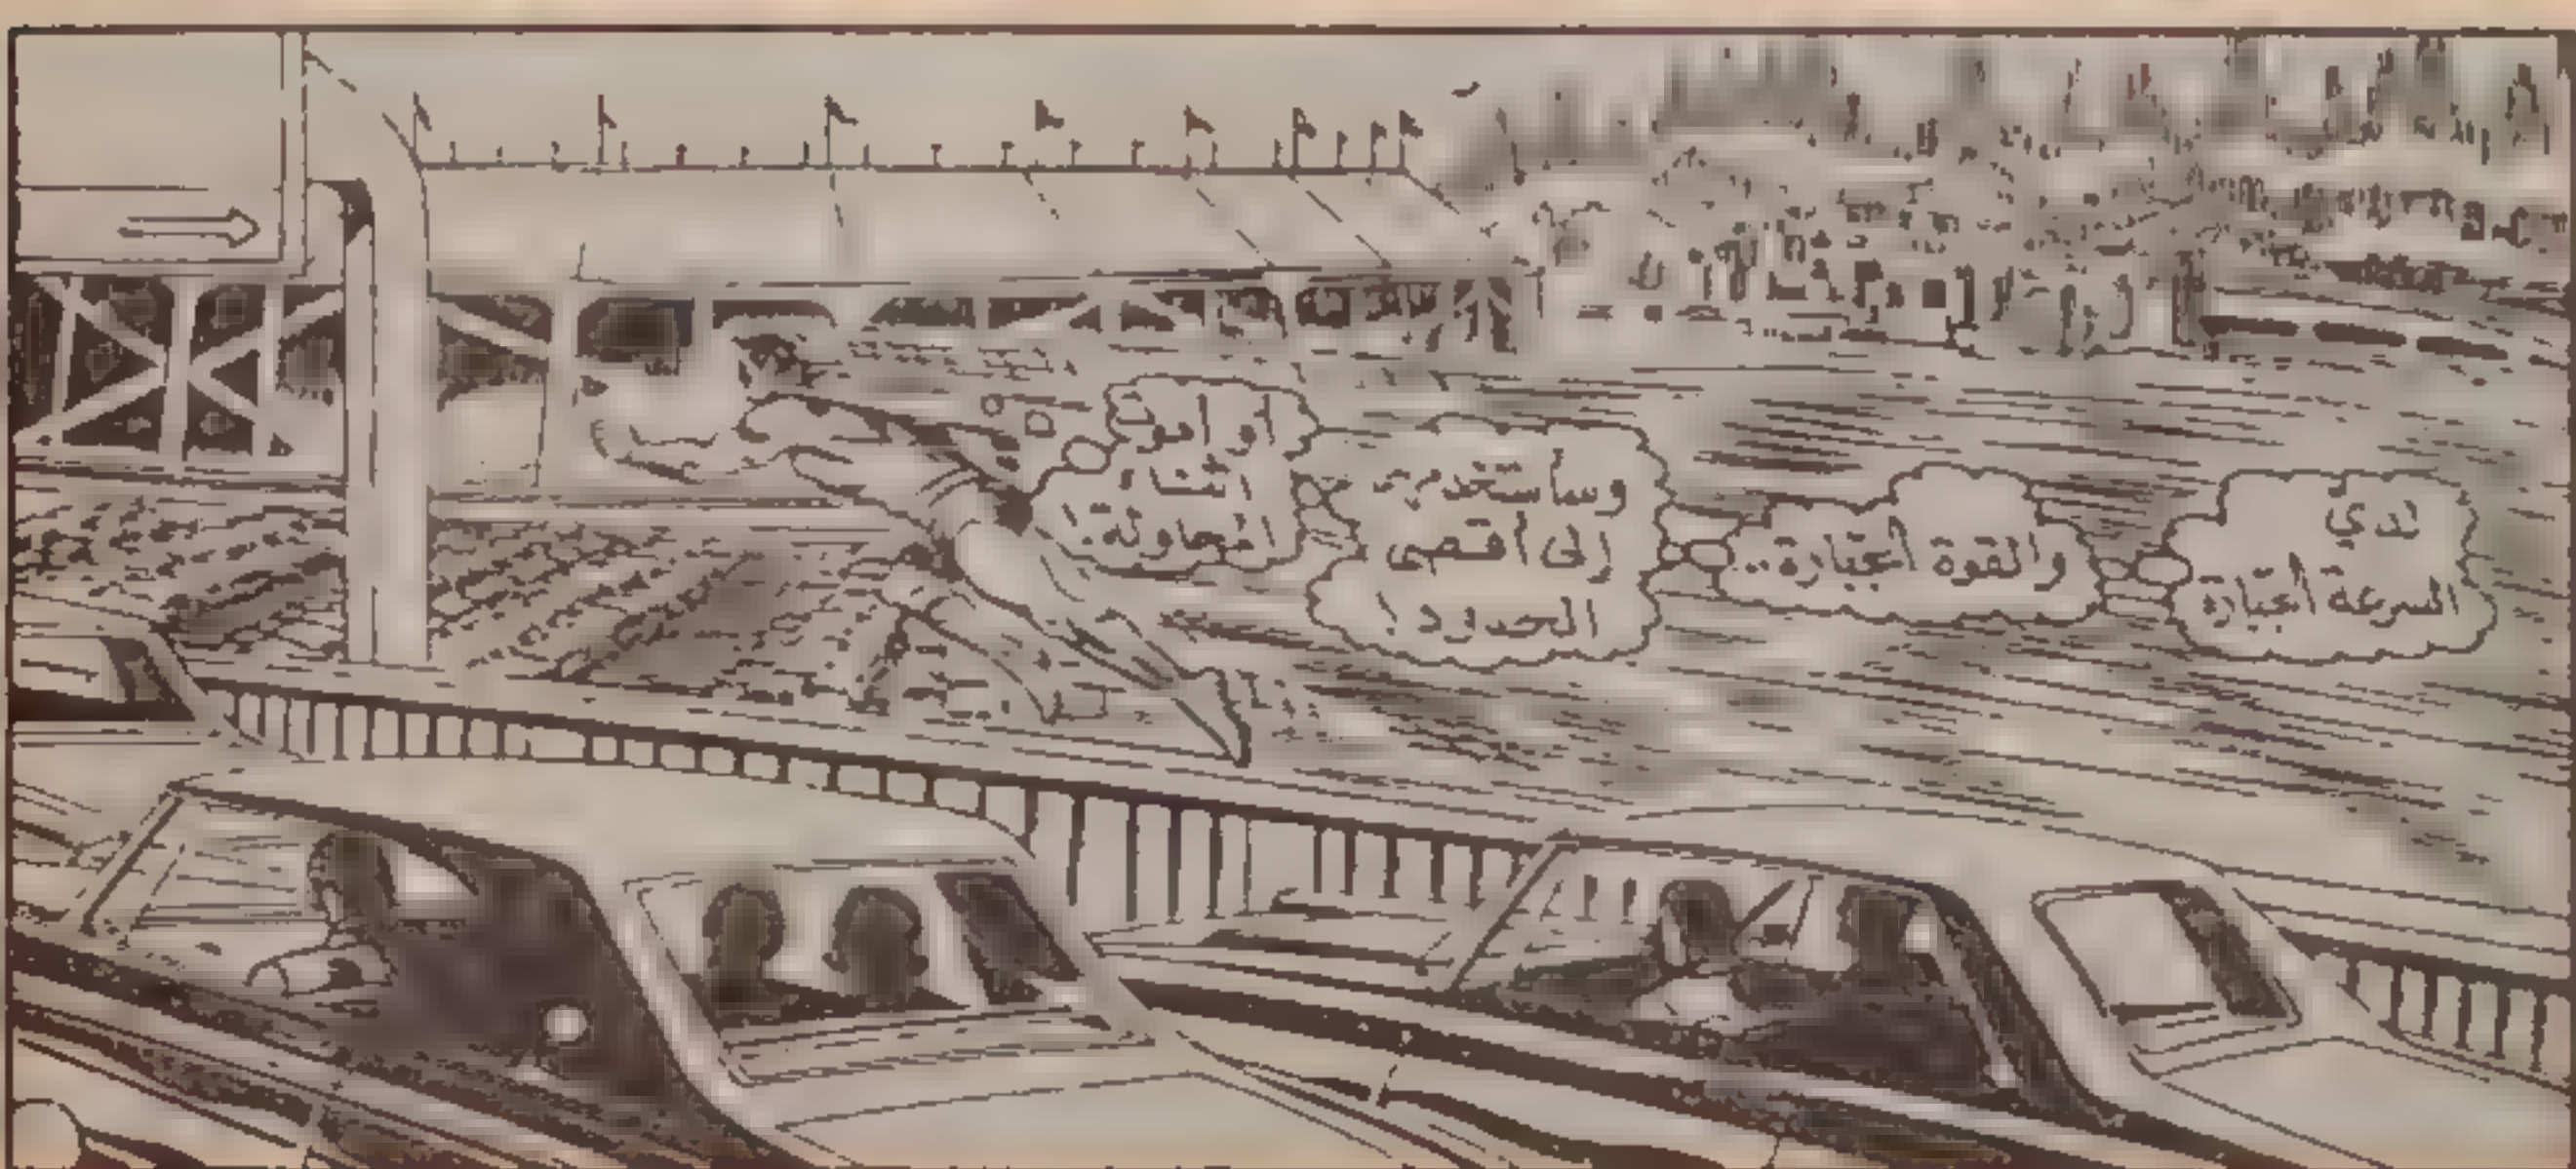 لدي
السرعة الجبّارة
والقوة الجبّارة..
وسأستخدمهم
إلى أقصى
الحدود !
أو أموت
أثناء
المحاولة !